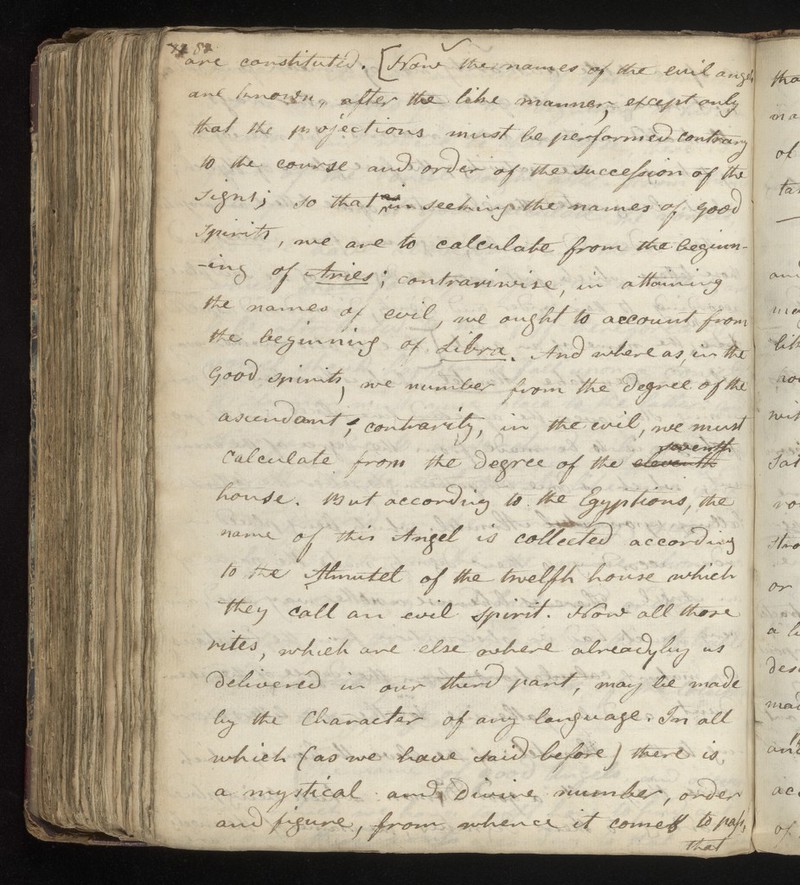 82
are constituted. [Now the names of the evil angels
are known, after the like manner, except only
that the projections must be performed contrary
to the course and order of the succession of the
signs; so that in seeking the names of good
spirits, we are to calculate from the beginn-
-ing of Aries; contrariwise, in attaining
the names of evil, we ought to account from
the beginning of Libra. And where as, in the
Good spirits, we number from the degree of the
ascendant; contrarity, in the evil, we must
seventh
calculate from the degree of the eleventh
house. But according to the Egyptions, the
name of this Angel is collected according
to the Almutel of the twelfth house which
they call an evil spirit. Now all those
rites, which are else where already by us
delivered in our third part, may be made
by the Character of any language. In all
which (as we have said before) there is
a mystical and divine number, order
and figure, from whence it comes to pass,
that